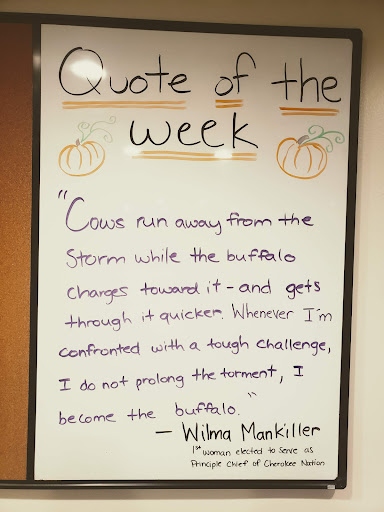 Quote of the
week
"Cows run away from the
Storm while the buffalo
charges toward it - and gets
through it quicker. Whenever I'm
confronted with a tough challenge,
I do not prolong the torment, I
become the buffalo."
— Wilma Mankiller
1st woman elected to serve as
Principle Chief of Cherokee Nation